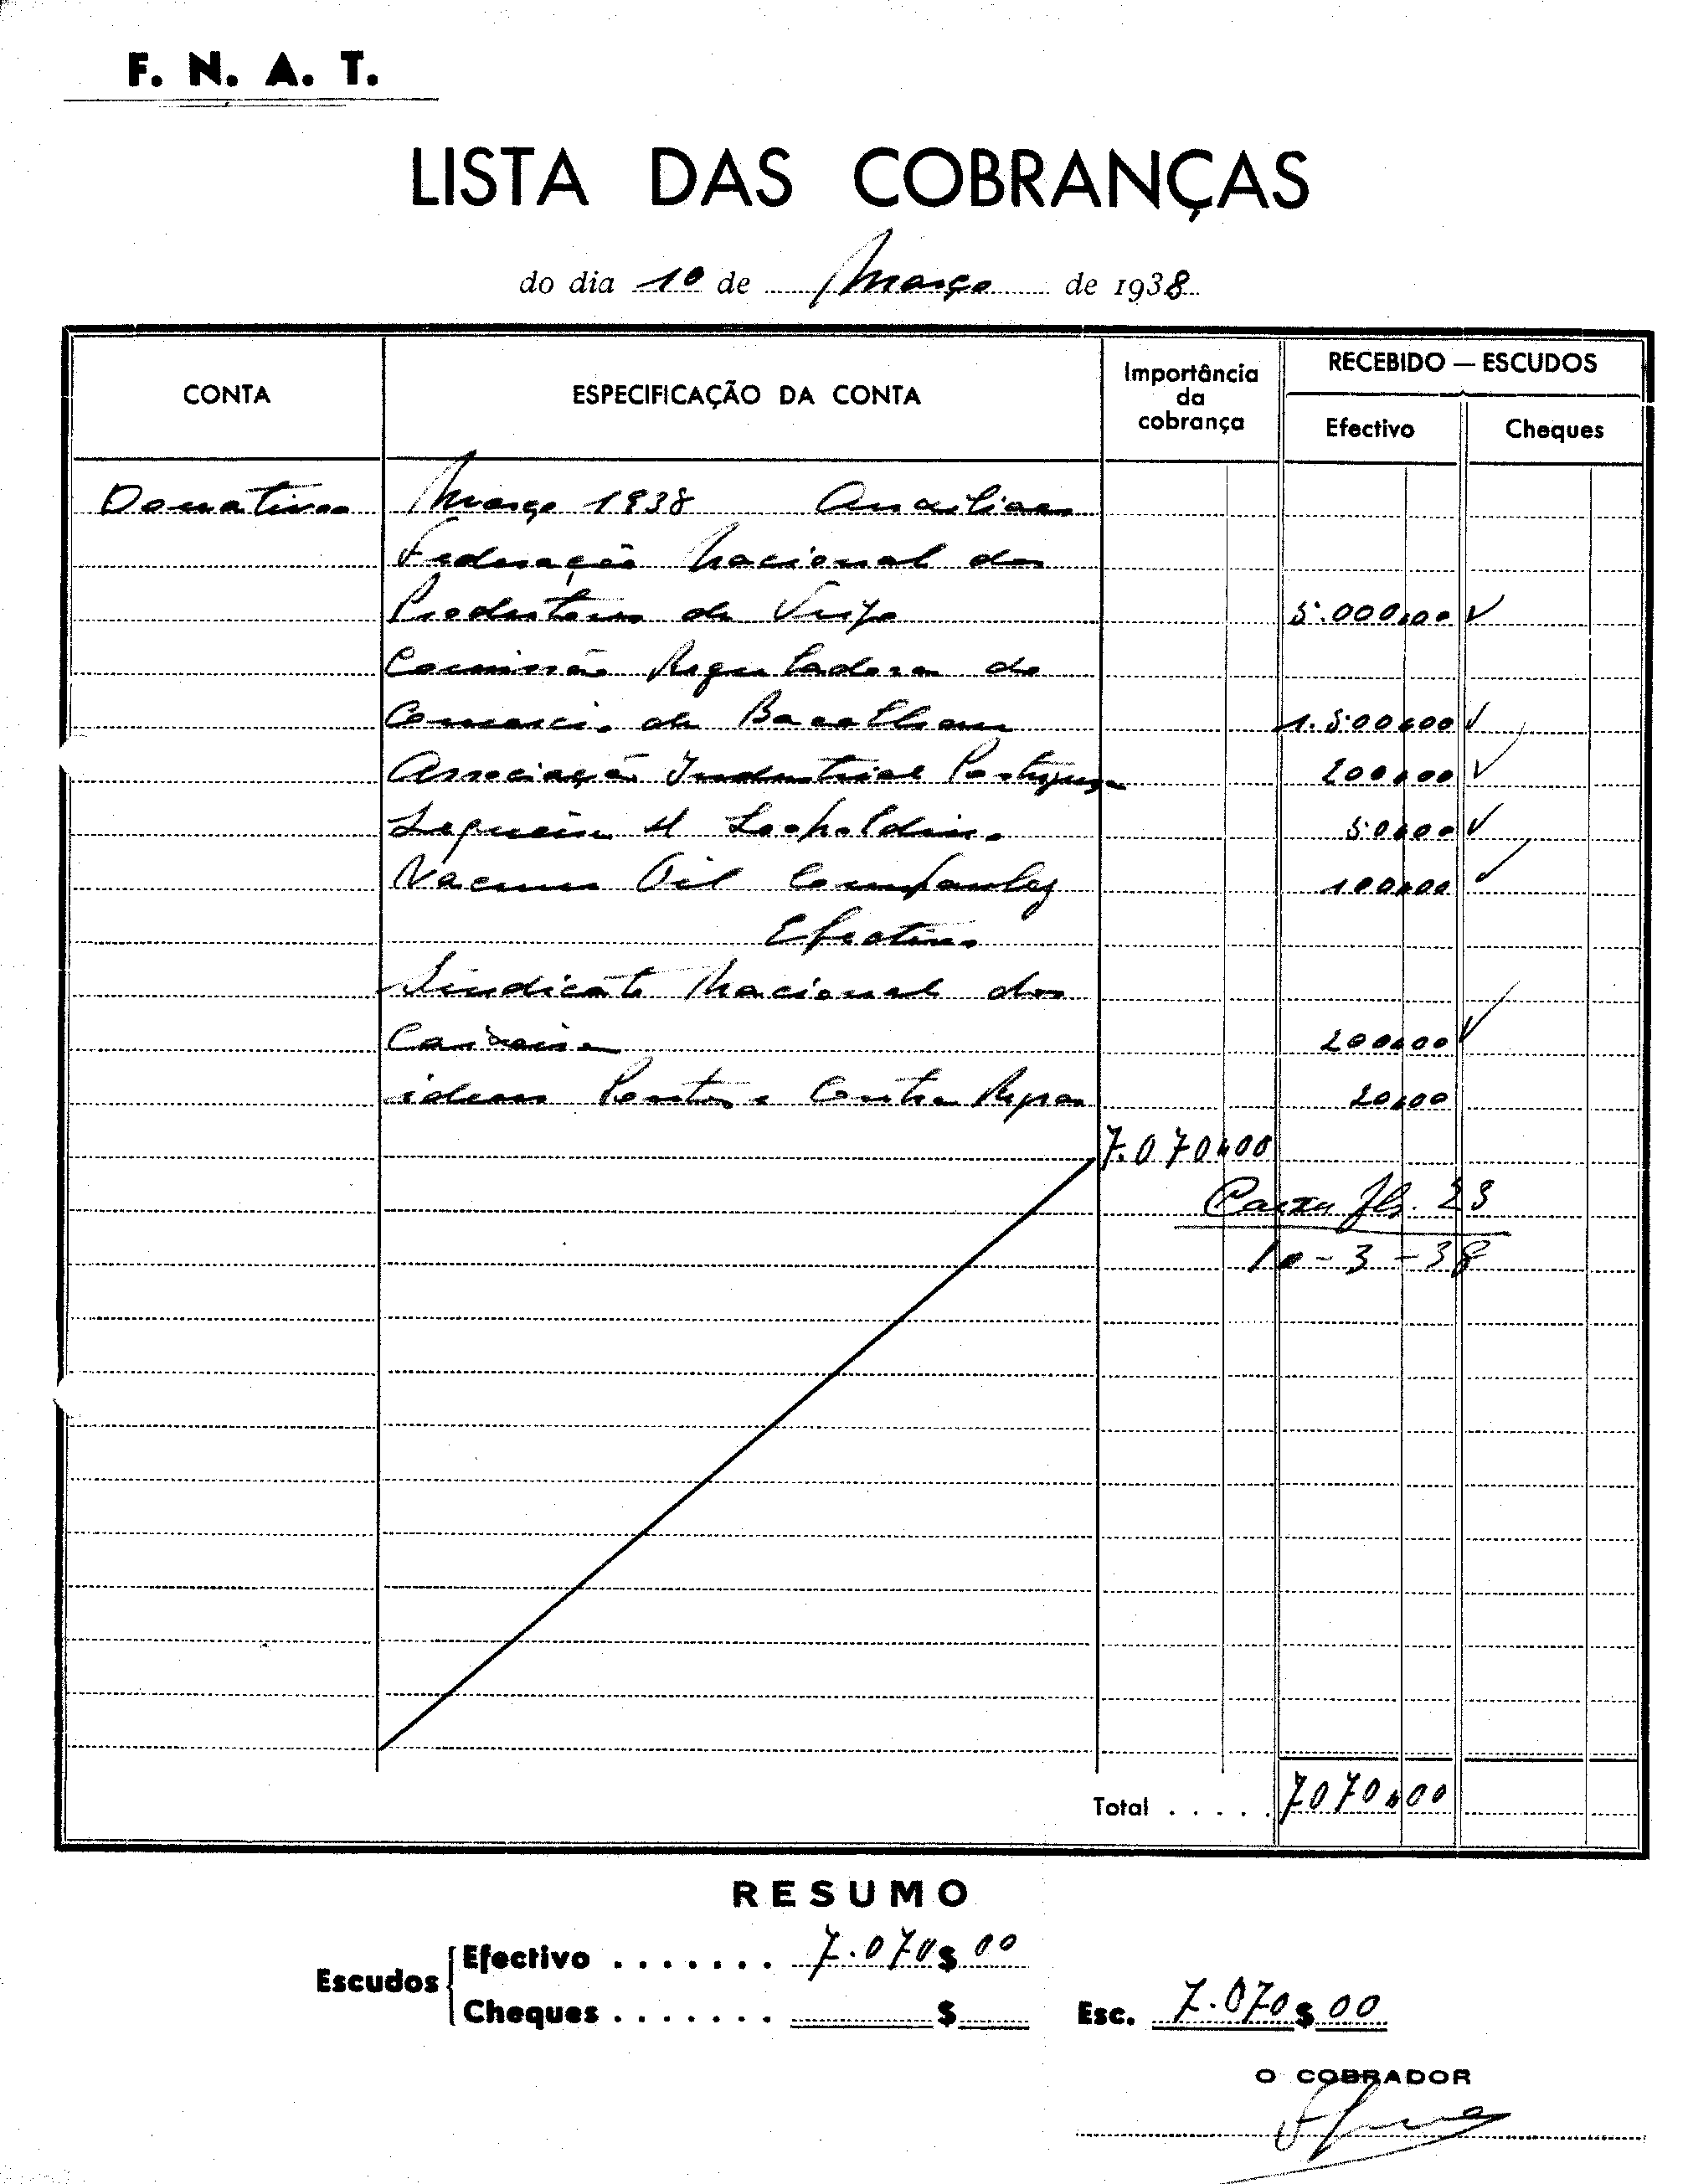 F. N. A. T.
LISTA DAS COBRANÇAS
do dia 10 de Março de 1938
CONTA
ESPECIFICAÇÃO DA CONTA
Importância
da
cobrança
RECEBIDO — ESCUDOS
Efectivo
Cheques
Donativos Março 1938 Auxiliares
Federação Nacional dos
Produtores de Trigo 5.000,00
Comissão Reguladora do
Comercio de Bacalhau 1.500,00
Associação Industrial Portuguesa 200,00
Sequeira & Leopoldino 50,00
Vacuum Oil Company 100,00
Efectivos
Sindicato Nacional dos
Caixeiros 200,00
idem 20,00
7.070,00
Caixa fls. 23
10-3-38
Total . . . . . 7070,00
RESUMO
Escudos
Efectivo . . . . . . . 7.070$00
Cheques . . . . . . . $
Esc. 7.070$00
O COBRADOR